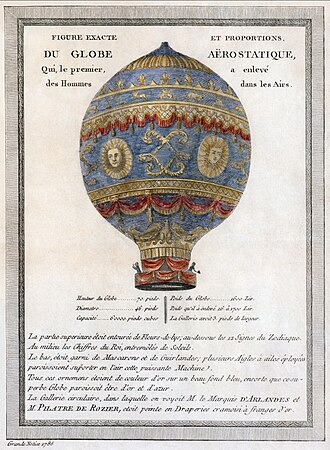 FIGURE EXACTE ET PROPORTIONS,
DU GLOBE AËROSTATIQUE,
Qui, le premier, a enlevé
des Hommes dans les Airs.
Hauteur du Globe..........70 pieds
Diametre..........46 pieds
Capacité..........60000 pieds cubes
Poids du Globe..........1600 Liv.
Poids qu'il a enlevé 16 à 1700 Liv.
La Gallerie avoit 3 pieds de largeur.
La partie supérieure étoit entourée de Fleurs-de-lys, au-dessous les 12 signes du Zodiaque.
Au milieu les Chiffres du Roi, entremêlés de Soleils.
Le bas, étoit garni de Mascarons et de Guirlandes; plusieurs Aigles à ailes éployées
paroissoient suporter en l'air cette puissante Machine.
Tous ces ornemens étoient de couleur d'or sur un beau fond bleu, ensorte que ce su-
perbe Globe paroissoit être d'or et d'azur.
La Gallerie circulaire, dans laquelle on voyoit M. le Marquis D'ARLANDES et
M. PILATRE DE ROZIER, étoit peinte en Draperies cramoisi à franges d'or.
1786